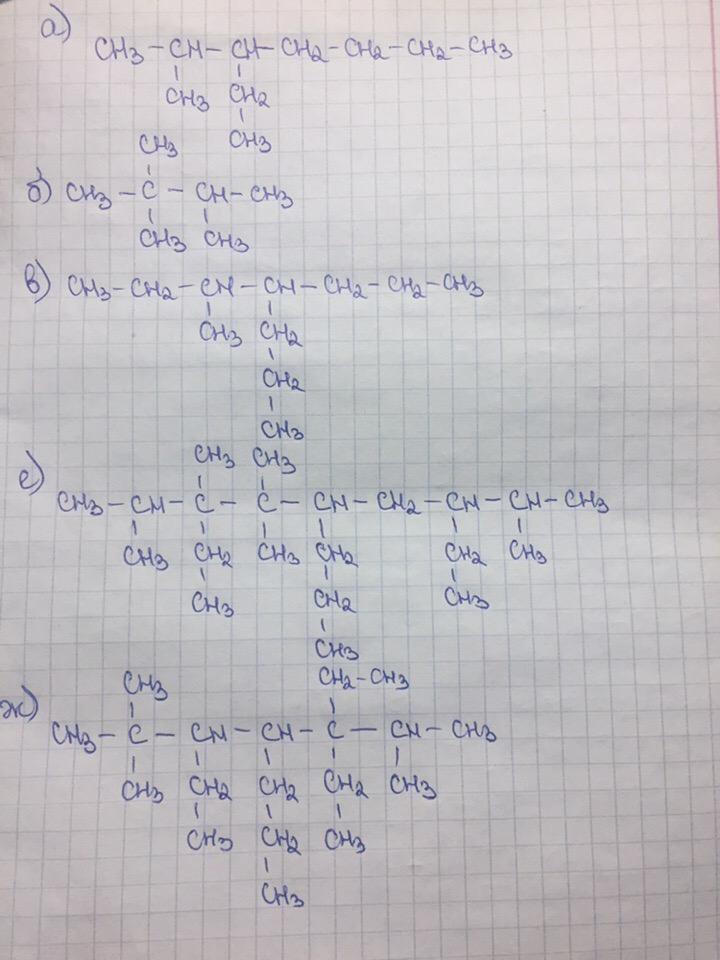 а) CH3 – CH – CH – CH2 – CH2 – CH2 – CH3
CH3 CH2
CH3 CH3
б) CH3 – C – CH – CH3
CH3 CH3
в) CH3 – CH2 – CH – CH – CH2 – CH2 – CH3
CH3 CH2
CH2
CH3
CH3 CH3
е) CH3 – CH – C – C – CH – CH2 – CH – CH – CH3
CH3 CH2 CH3 CH2 CH2 CH3
CH3 CH2 CH3
CH3
CH3 CH2 – CH3
ж) CH3 – C – CH – CH – C – CH – CH3
CH3 CH2 CH2 CH2 CH3
CH3 CH2 CH3
CH3